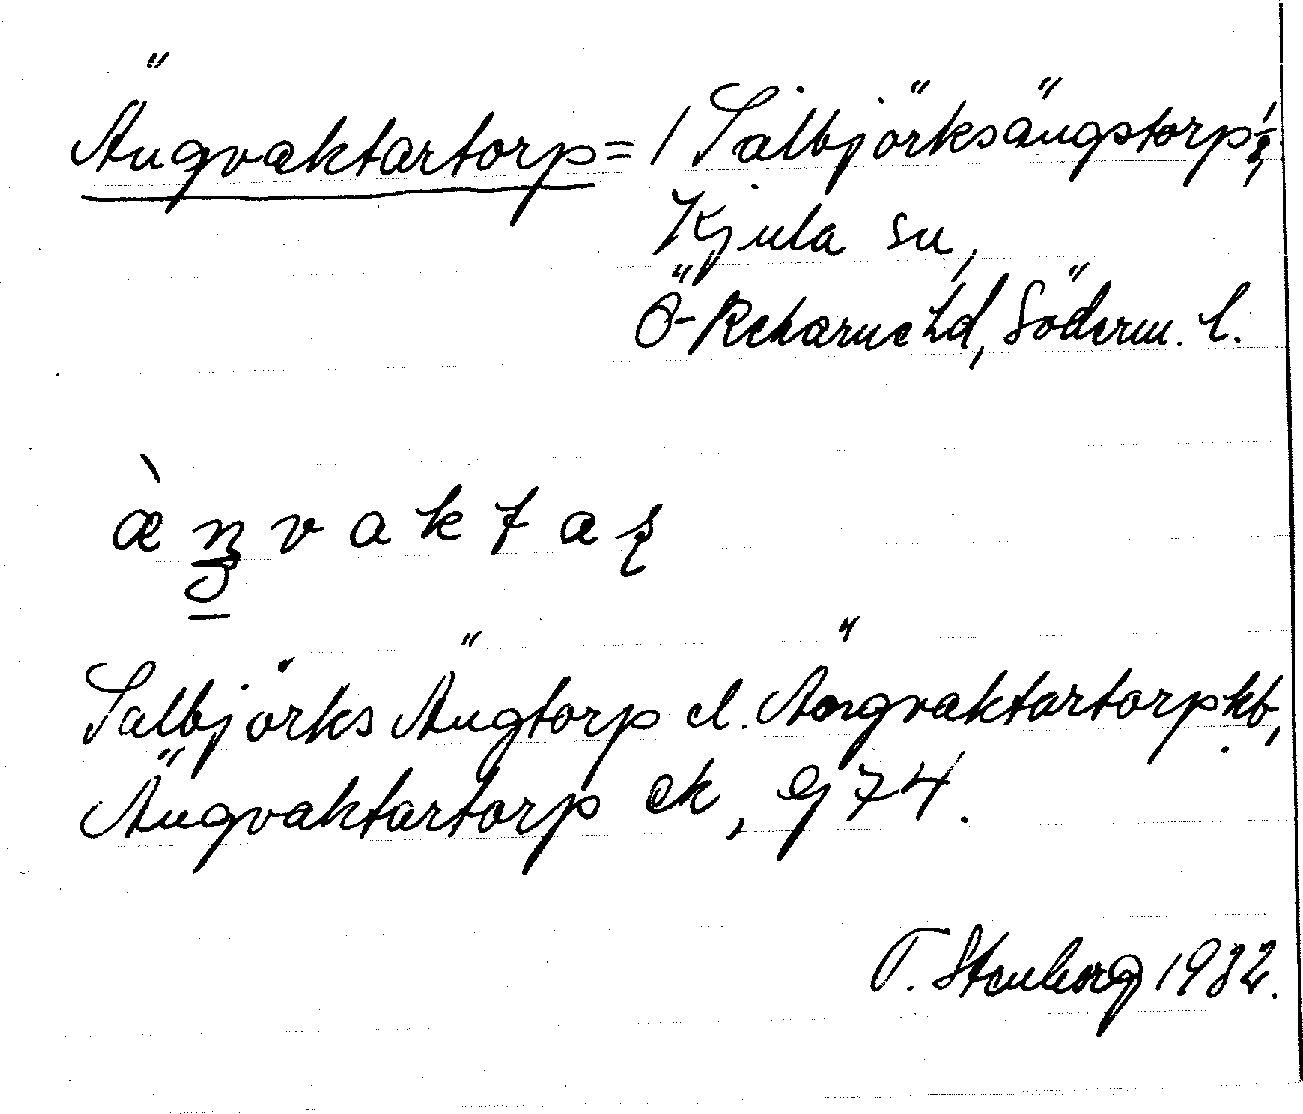 Ängvaktartorp = / Salbjörksängstorp/,
Kjula sn,
Ö-Rekarne hd, Söderm. l.
æ̀ŋvaktaʂ
Salbjörks Ängtorp el. Ängvaktartorp kb,
Ängvaktartorp ek, Gj 74.
T. Stenberg 1932.